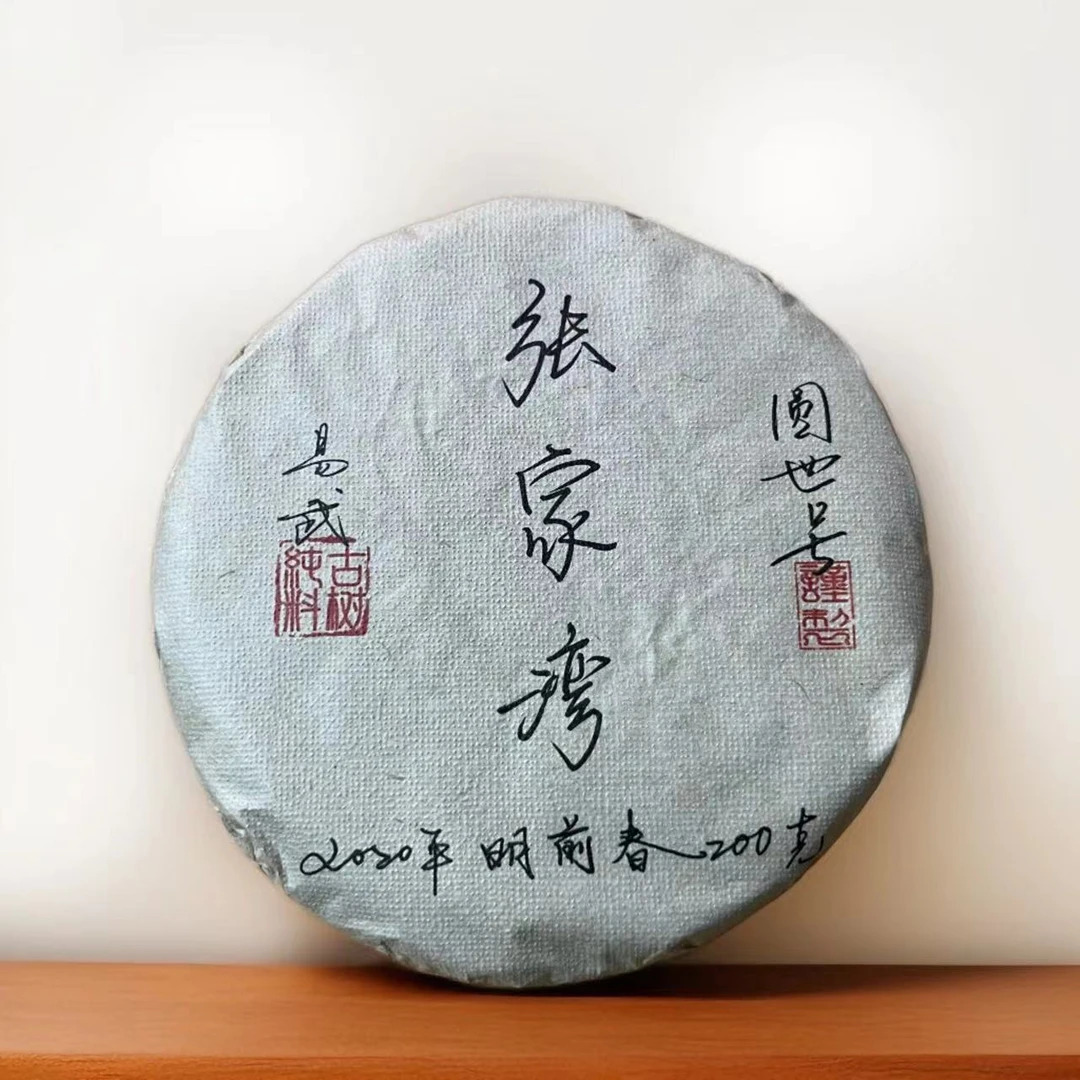 圆世号
謹製
张家湾
易武
古树
純料
2020年 明前春200克